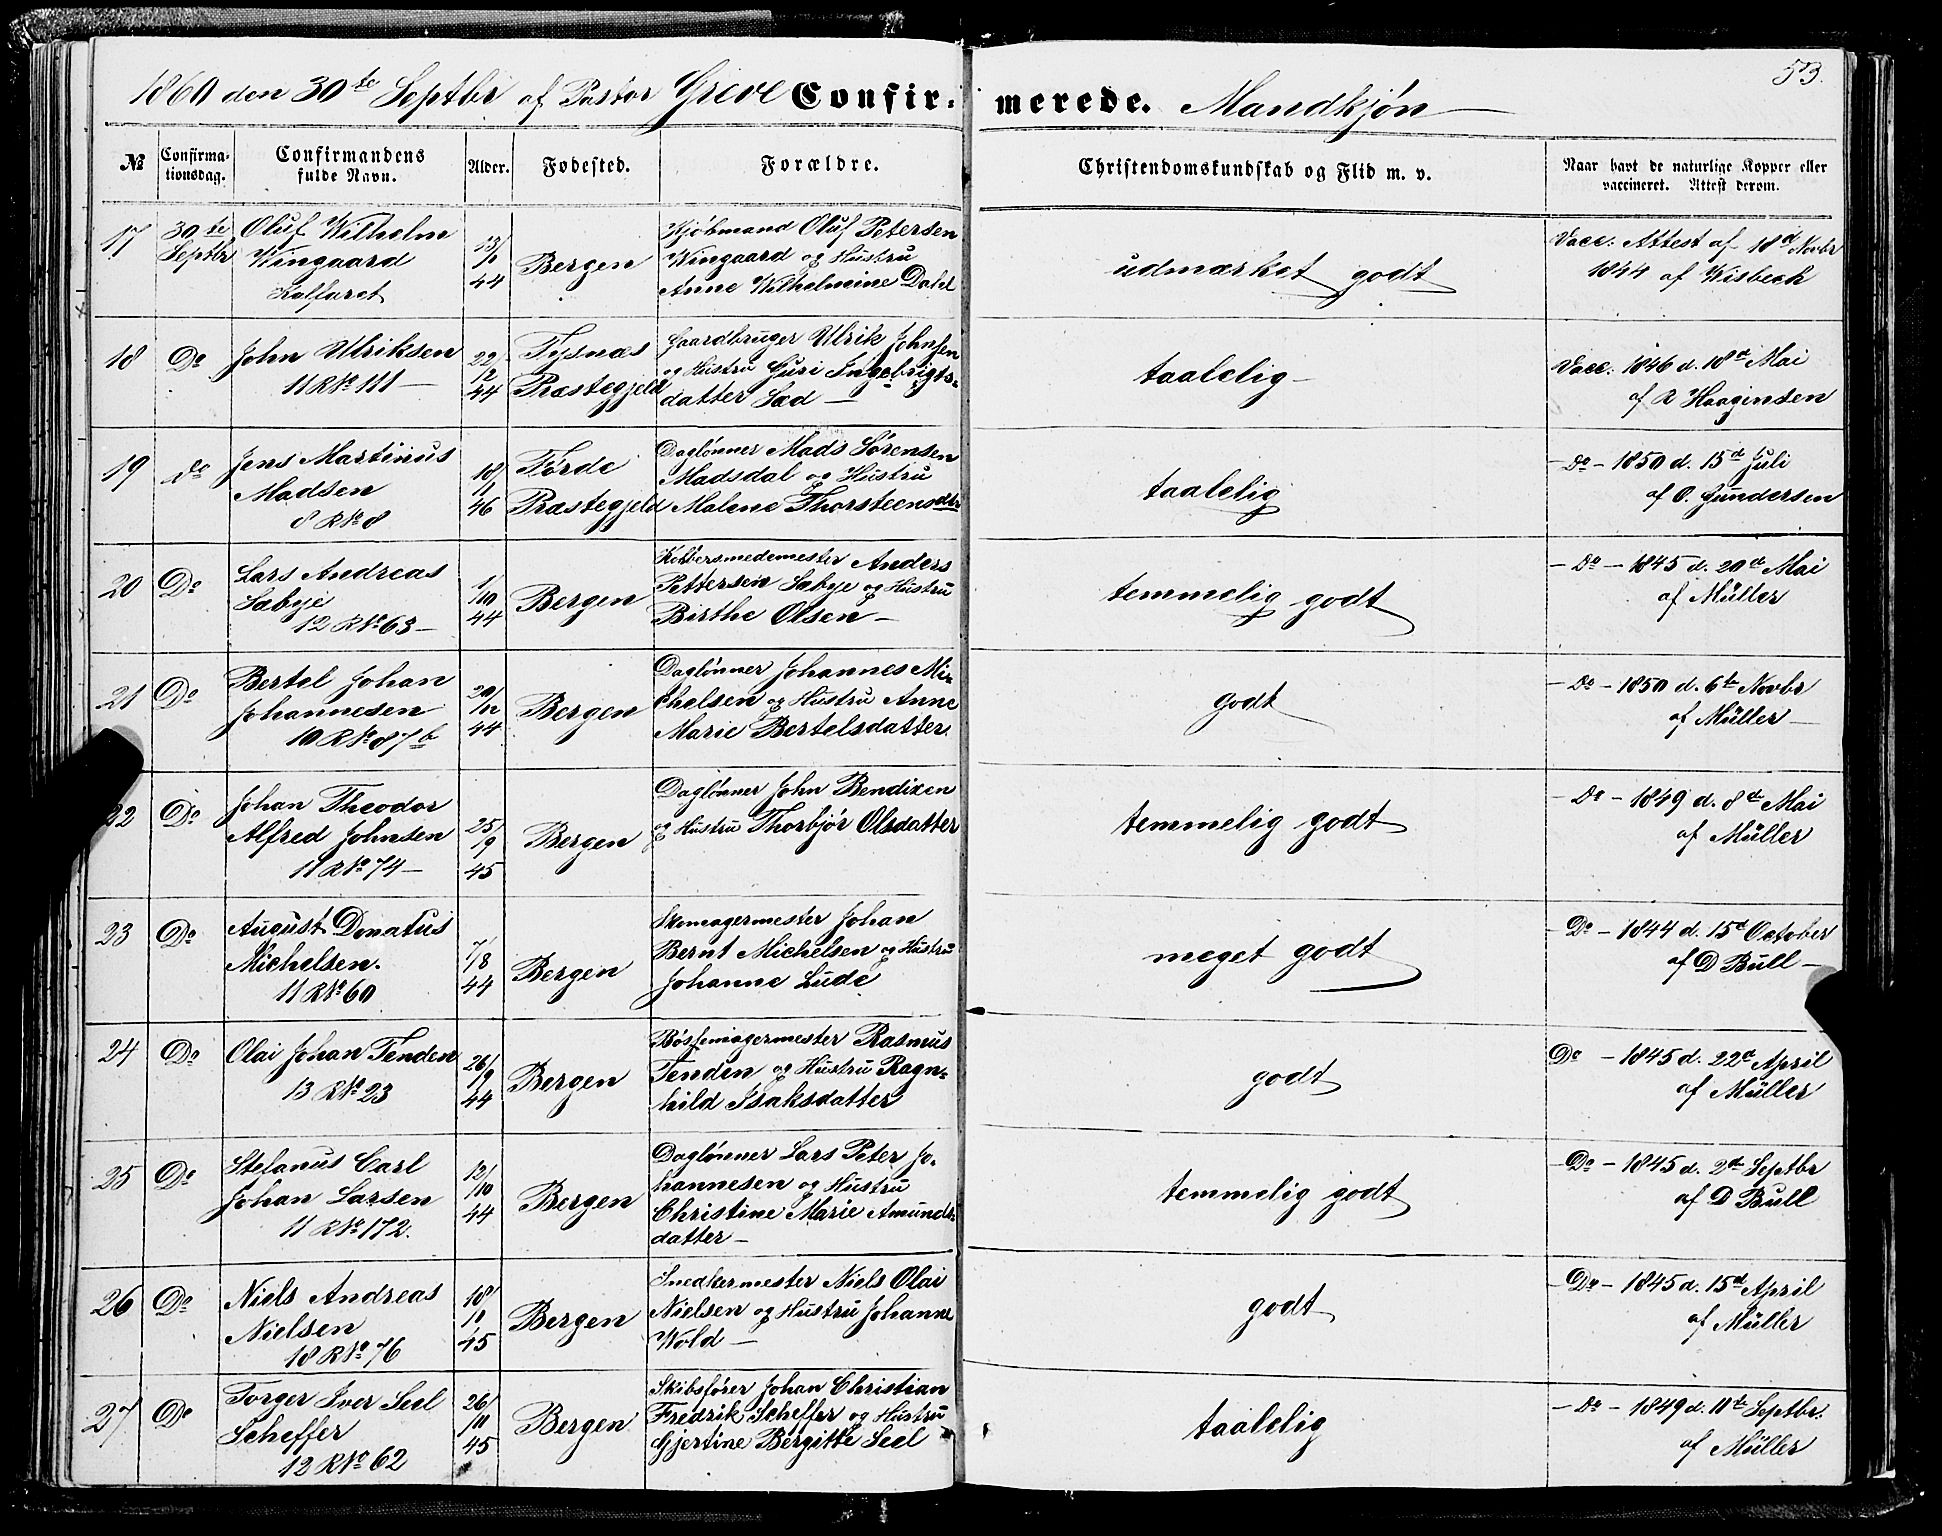 1860 den 30te Septbr af Pastor Greve Confir- merede. Mandkjøn
53.
№ Confirma-tionsdag. Confirmandens fulde Navn. Alder. Fødested. Forældre. Christendomskundskab og Flid m. v. Naar havt de naturlige Kopper eller vaccineret. Attest derom.
17 30te Septbr
Oluf Wilhelm
Wingaard
Kalfaret
44
Bergen
Kjøbmand Oluf Petersen
Wingaard og Hustru
Anne Wilhelmine Dahl
udmærket godt
Vacc. Attest af 18d Novbr
1844 af Wisbech
18 Do
John Ulriksen
11 R No 111 —
22/12 44
Tysnæs
Præstegjeld
Gaardbruger Ulrik Johnsen
og Hustru Guri Ingebrigts-
datter Sæd —
taalelig
Vacc. 1846 d. 18d Mai
af R Haaginsen
19 do
Jens Martinus
Madsen
8 R No 8
18/11 46
Førde
Præstegjeld
Daglønner Mads Sørensen
Madsdal og Hustru
Malene Thorsteensdtr
taalelig
– Do – 1850 d. 15d Juli
af O. Gundersen
20 Do
Lars Andreas
Sæbye
12 R No 63 –
1/10 44
Bergen
Kobbersmedemester Anders
Pettersen Sæbye og Hustru
Birthe Olsen –
temmelig godt
– Do – 1845 d. 20d Mai
af Müller
21 Do
Bertel Johan
Johannesen
10 R No 87b
20/12 44
Bergen
Daglønner Johannes Mi-
chelsen og Hustru Anne
Marie Bertelsdatter.
godt
– Do – 1850 d. 6te Novbr
af Müller –
22 Do
Johan Theodor
Alfred Johnsen
11 R No 74 –
25/9 45
Bergen
Daglønner John Bendixen
og Hustru Thorbjør Olsdatter
temmelig godt
– Do – 1849 d. 8d Mai
af Müller
23 Do
August Donatus
Michelsen.
11 R No 60
7/8 44
Bergen
Skomagermester Johan
Bernt Michelsen og Hustru
Johanne Lude
meget godt
– Do – 1844 d. 15d October
af D Bull –
24 Do
Olai Johan Tenden
13 R No 23
26/9 44
Bergen
Bøssemagermester Rasmus
Tenden og Hustru Ragn-
hild Isaksdatter
godt
Do – 1845 d. 22d April
af Müller
25 Do
Stefanus Carl
Johan Larsen
11 R No 172.
12/10 44
Bergen
Daglønner Lars Peter Jo-
hannesen og Hustru
Christine Marie Amunds-
datter –
temmelig godt
– Do – 1845 d. 2d Septbr
af D Bull
26 Do
Niels Andreas
Nielsen
18 R No 76
18/11 45
Bergen
Snedkermester Niels Olai
Nielsen og Hustru Johanne
Wold –
godt
– Do – 1845 d. 15d April
af Müller
27 Do
Torger Iver Seel
Scheffer
12 R No 62
26/11 45
Bergen
Skibsfører Johan Christian
Fredrik Scheffer og Hustru
Gjertine Bergitte Seel
taalelig
– Do – 1849 d. 11te Septbr.
af Müller